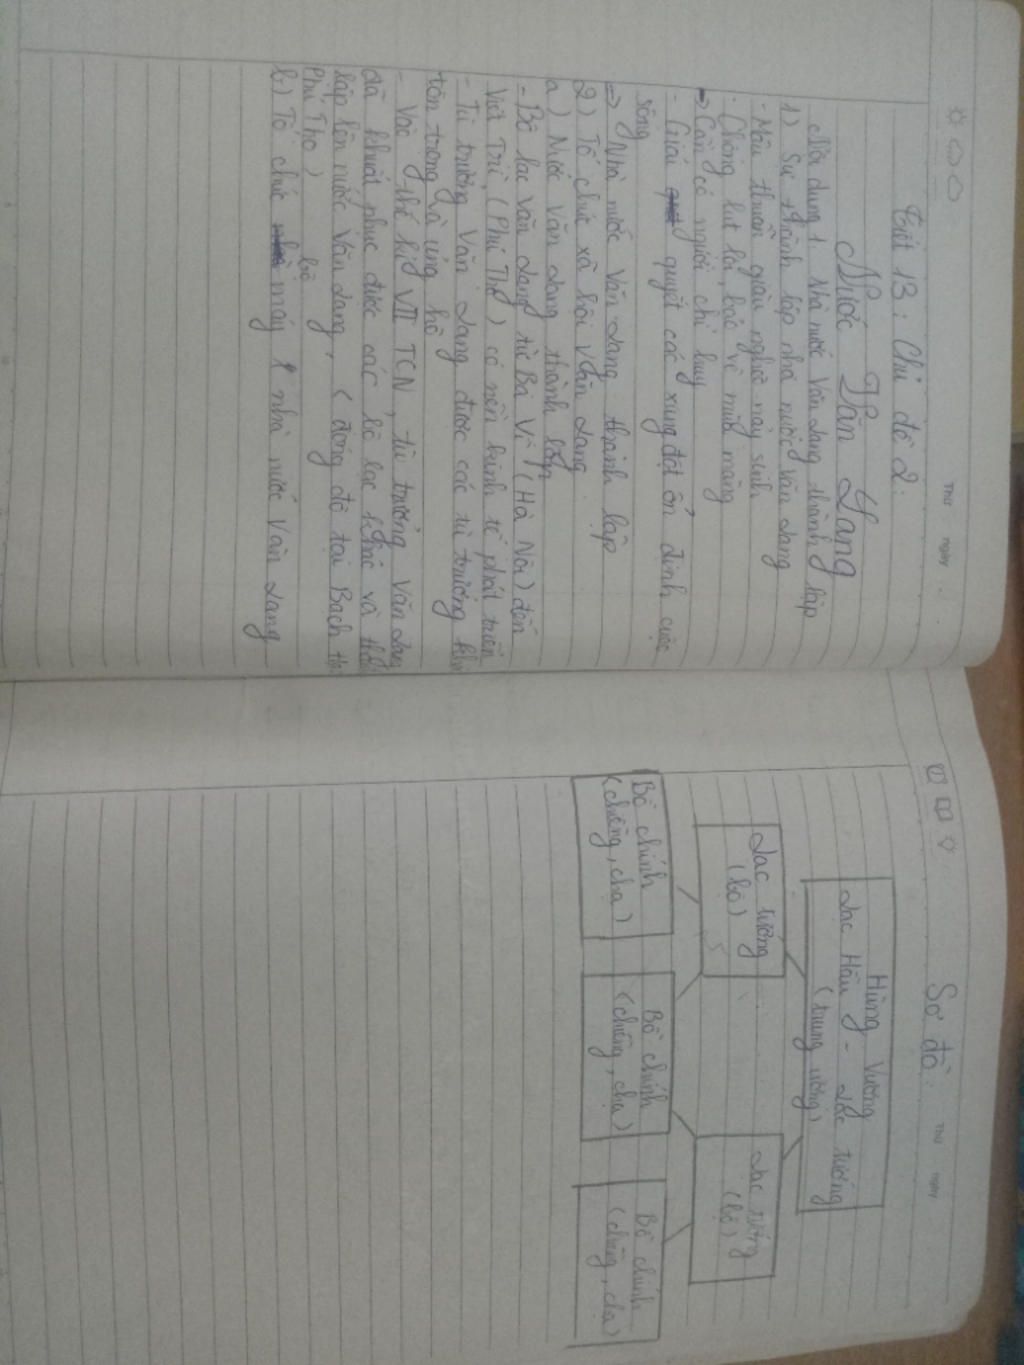 THỨ NGÀY
Tiết 13: Chủ đề 2:
Nước Văn Lang
Nội dung 1. Nhà nước Văn Lang thành lập
1) Sự thành lập nhà nước Văn Lang
- Mâu thuẫn giàu nghèo nảy sinh
- Chống lụt lội, bảo vệ mùa màng
=> Cần có người chỉ huy
- Giải quyết các xung đột ổn định cuộc
sống
=> Nhà nước Văn Lang thành lập
2) Tổ chức xã hội Văn Lang.
a) Nước Văn Lang thành lập
- Bộ lạc Văn Lang từ Ba Vì (Hà Nội) đến
Việt Trì (Phú Thọ) có nền kinh tế phát triển
- Tù trưởng Văn Lang được các tù trưởng khác
tôn trọng và ủng hộ
- Vào thế kỷ VII TCN, tù trưởng Văn Lang
đã khuất phục được các bộ lạc khác và
lập lên nước Văn Lang, (đóng đô tại Bạch
Phú Thọ)
b) Tổ chức bộ máy nhà nước Văn Lang
Sơ đồ.
THỨ NGÀY
Hùng Vương
Lạc Hầu - Lạc tướng
(trung ương)
Lạc tướng
(bộ)
Lạc tướng
(bộ)
Bồ chính
(chiềng, chạ)
Bồ chính
(chiềng, chạ)
Bồ chính
(chiềng, chạ)